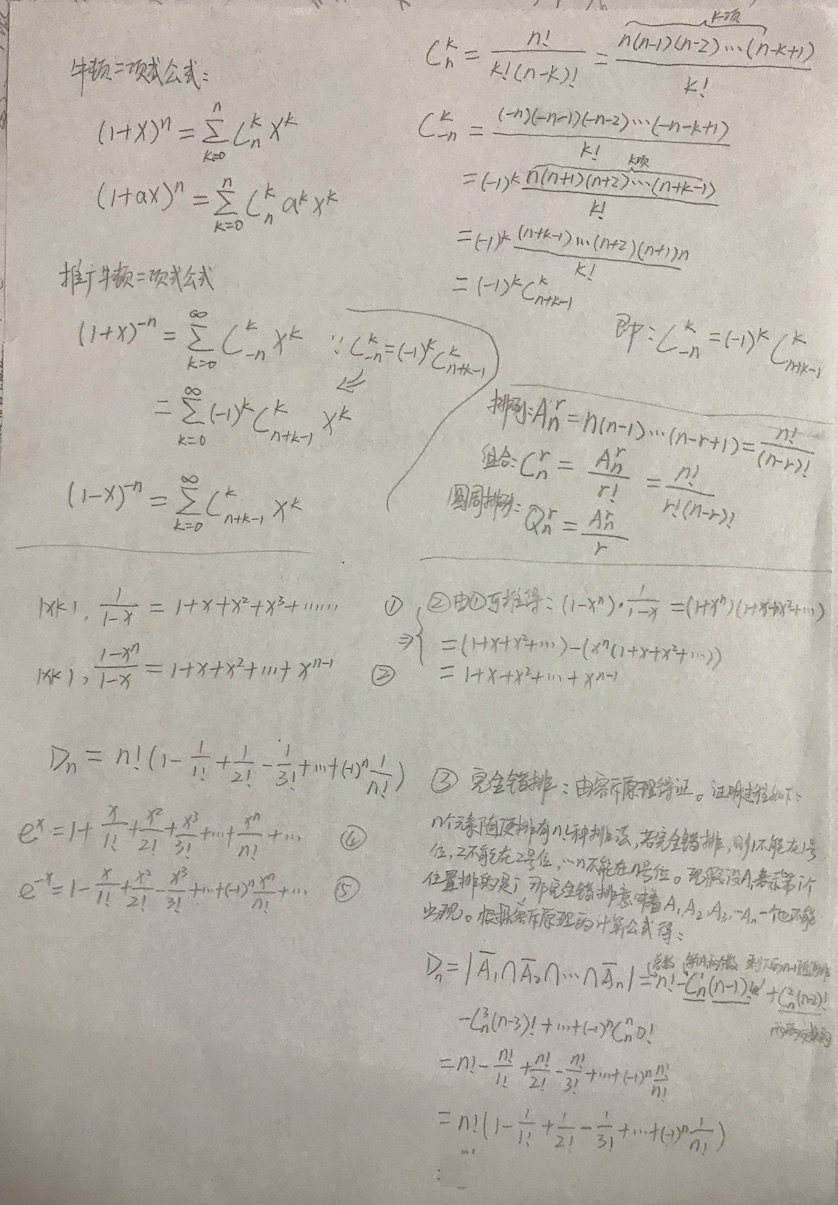 牛顿二项式公式:
(1+x)^n = \sum_{k=0}^{n} C_n^k x^k
(1+ax)^n = \sum_{k=0}^{n} C_n^k a^k x^k
推广牛顿二项式公式
(1+x)^{-n} = \sum_{k=0}^{\infty} C_{-n}^k x^k ∵ C_{-n}^k = (-1)^k C_{n+k-1}^k
= \sum_{k=0}^{\infty} (-1)^k C_{n+k-1}^k x^k
(1-x)^{-n} = \sum_{k=0}^{\infty} C_{n+k-1}^k x^k
C_n^k = \frac{n!}{k!(n-k)!} = \frac{\overbrace{n(n-1)(n-2)\cdots(n-k+1)}^{k项}}{k!}
C_{-n}^k = \frac{(-n)(-n-1)(-n-2)\cdots(-n-k+1)}{k!}
= (-1)^k \frac{\overbrace{n(n+1)(n+2)\cdots(n+k-1)}^{k项}}{k!}
= (-1)^k \frac{(n+k-1)\cdots(n+2)(n+1)n}{k!}
= (-1)^k C_{n+k-1}^k
即: C_{-n}^k = (-1)^k C_{n+k-1}^k
排列: A_n^r = n(n-1)\cdots(n-r+1) = \frac{n!}{(n-r)!}
组合: C_n^r = \frac{A_n^r}{r!} = \frac{n!}{r!(n-r)!}
圆周排列: Q_n^r = \frac{A_n^r}{r}
|x|<1, \frac{1}{1-x} = 1+x+x^2+x^3+…… ①
|x|<1, \frac{1-x^n}{1-x} = 1+x+x^2+…+x^{n-1} ②
②由①可推得: (1-x^n)·\frac{1}{1-x} = (1+x^n)(1+x+x^2+…)
⇒ = (1+x+x^2+…)-(x^n(1+x+x^2+…))
= 1+x+x^2+…+x^{n-1}
D_n = n!(1-\frac{1}{1!}+\frac{1}{2!}-\frac{1}{3!}+…+(-1)^n\frac{1}{n!})
e^x = 1+\frac{x}{1!}+\frac{x^2}{2!}+\frac{x^3}{3!}+…+\frac{x^n}{n!}+… ④
e^{-x} = 1-\frac{x}{1!}+\frac{x^2}{2!}-\frac{x^3}{3!}+…+(-1)^n\frac{x^n}{n!}+… ⑤
③ 完全错排: 由容斥原理得证。证明过程如下:
n个元素随便排有n!种排法,若完全错排,则1不能在1号
位,2不能在2号位,…n不能在n号位。现假设A_i表示第i个
位置排的是i 那完全错排意味着A_1,A_2,A_3,…A_n一个也不能
出现。根据容斥原理的计算公式得:
D_n = |\overline{A}_1∩\overline{A}_2∩…∩\overline{A}_n| = n!-C_n^1(n-1)!+C_n^2(n-2)!
-C_n^3(n-3)!+…+(-1)^n C_n^n 0!
= n!-\frac{n!}{1!}+\frac{n!}{2!}-\frac{n!}{3!}+…+(-1)^n\frac{n!}{n!}
= n!(1-\frac{1}{1!}+\frac{1}{2!}-\frac{1}{3!}+…+(-1)^n\frac{1}{n!})